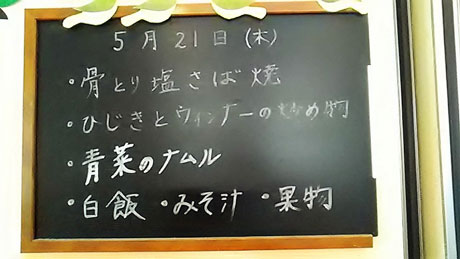 5月21日(木)
・骨とり塩さば焼
・ひじきとウィンナーの炒め物
・青菜のナムル
・白飯 ・みそ汁 ・果物